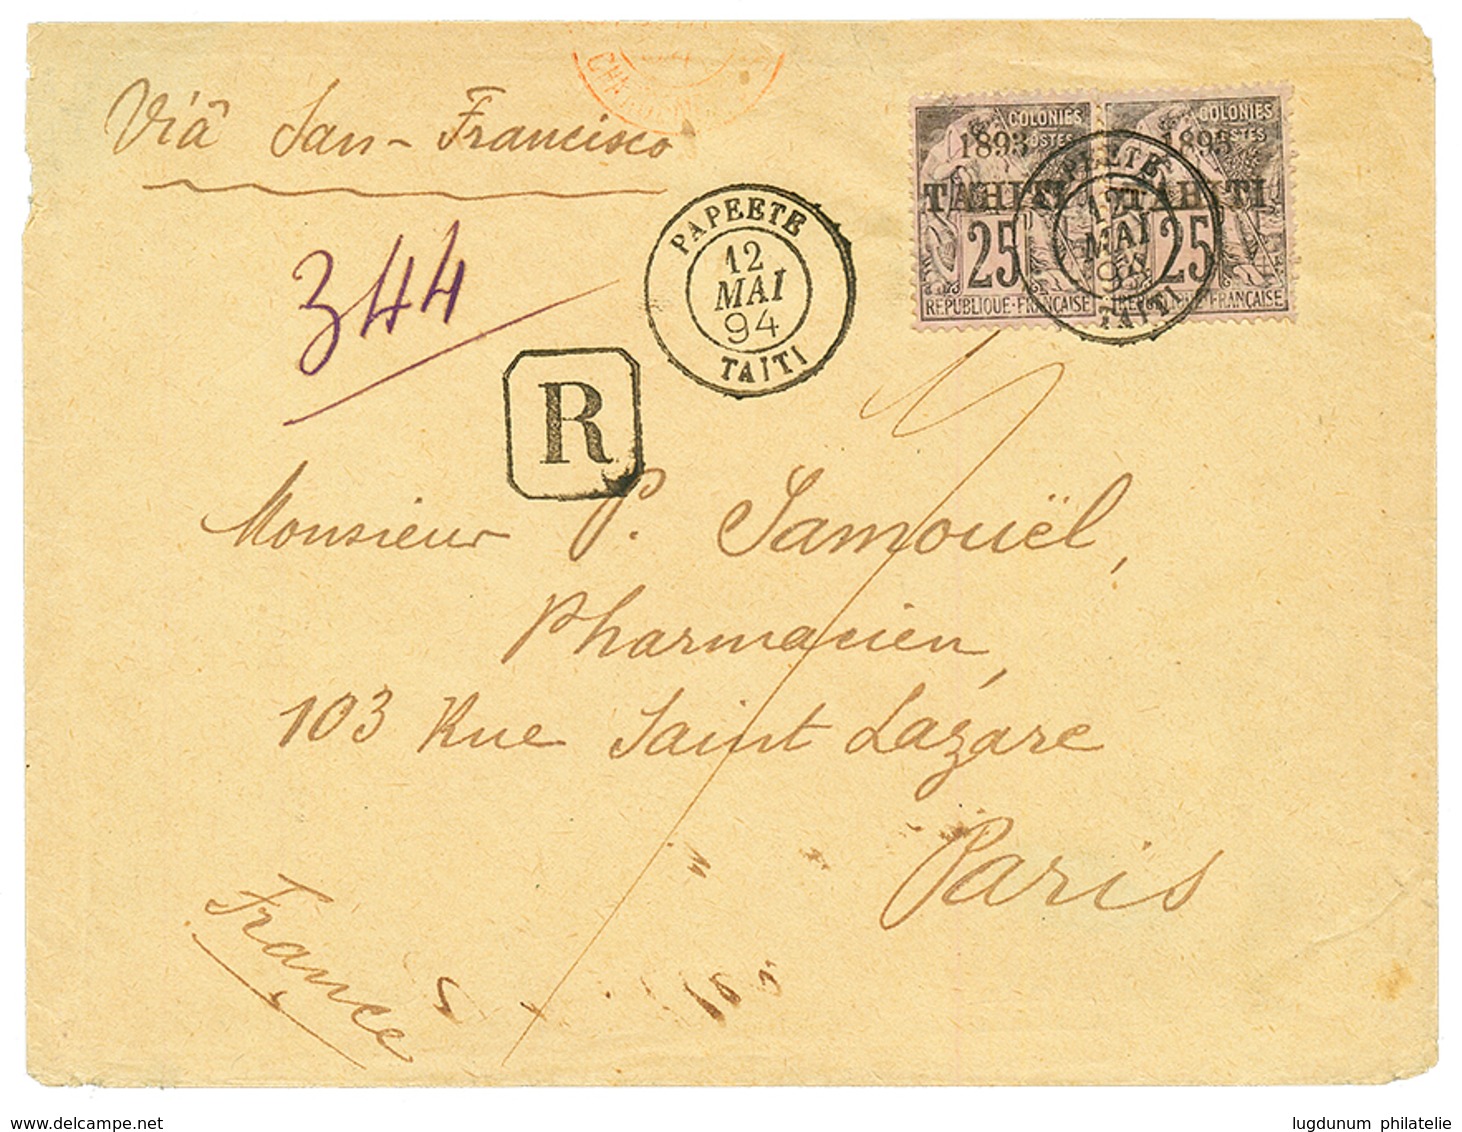 Viâ San-Francisco
344
PAPEETE
12
MAI
94
TAITI
R
COLONIES
POSTES
1893
TAHITI
25
REPUBLIQUE-FRANÇAISE
COLONIES
POSTES
1893
TAHITI
25
REPUBLIQUE-FRANÇAISE
PAPEETE
12
MAI
94
TAITI
Monsieur P. Samouël,
Pharmacien,
103 Rue Saint Lazare
Paris
France
www.delcampe.net
lugdunum philatelie